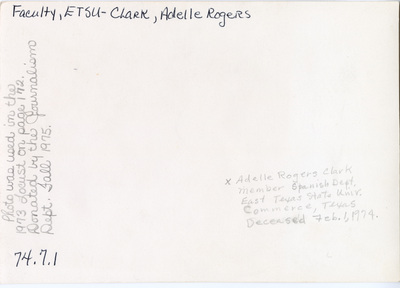 Faculty, ETSU-Clark, Adelle Rogers
Photo was used in the
1973 Locust on page 172.
Donated by the Journalism
Dept. Fall 1975.
x Adelle Rogers Clark
member Spanish Dept.
East Texas State Univ.
Commerce, Texas
Deceased Feb. 1, 1974.
74.7.1